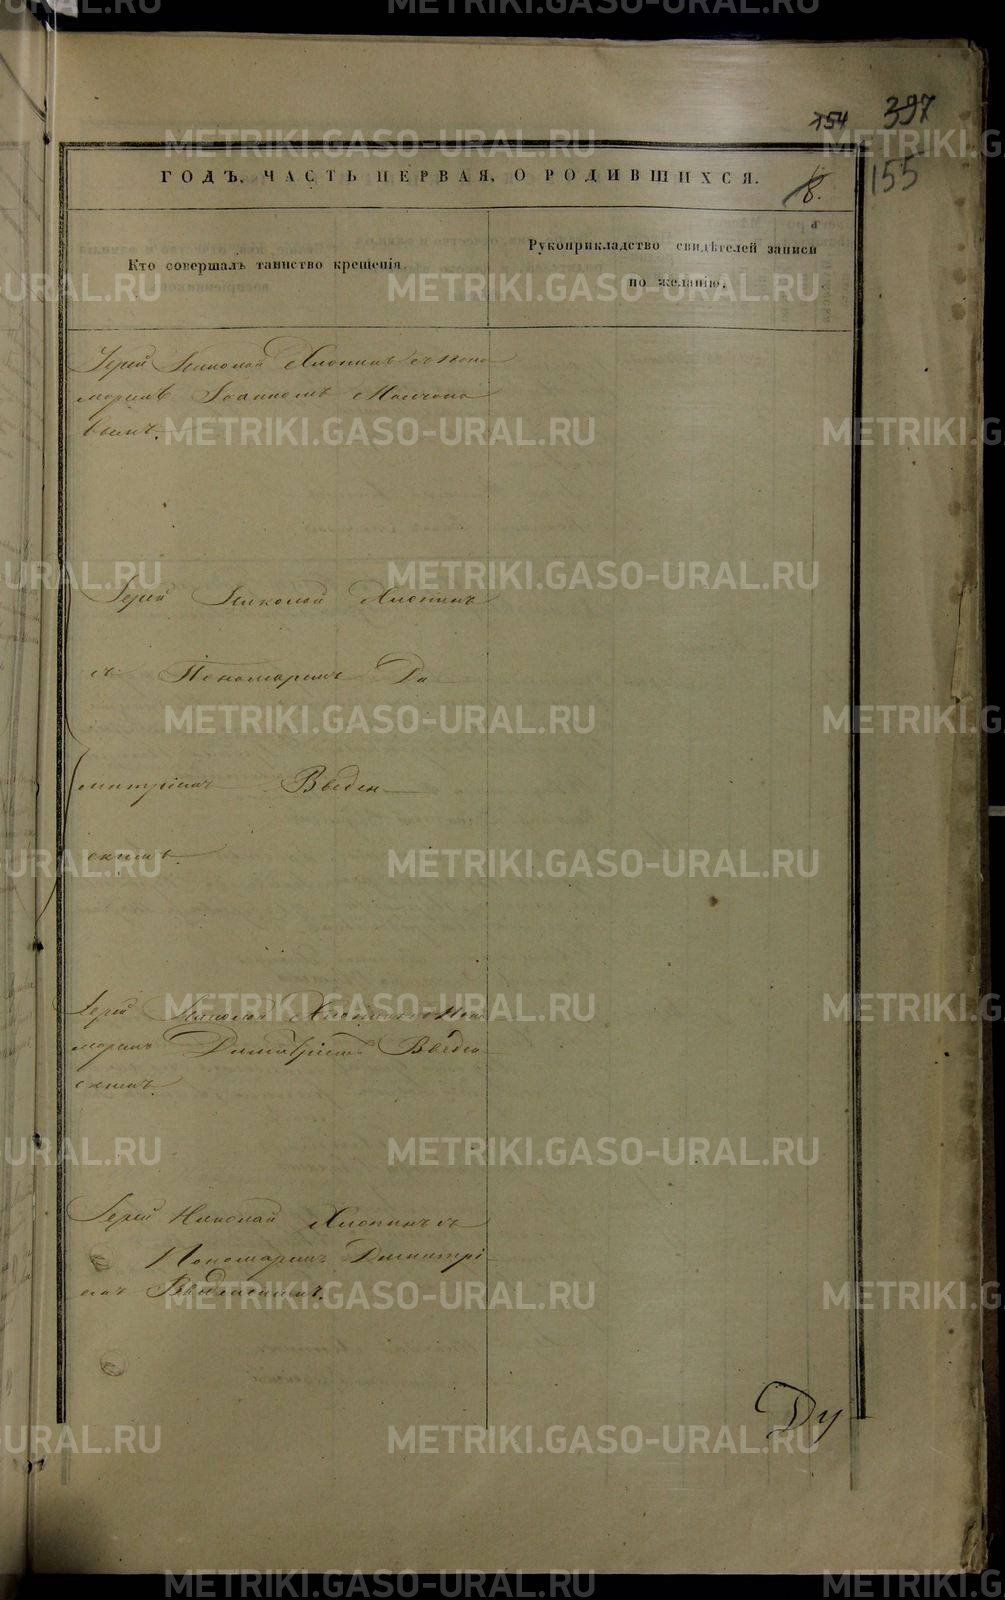 154 397
155
ГОДЪ, ЧАСТЬ ПЕРВАЯ, О РОДИВШИХСЯ. 8.
Кто совершалъ таинство крещенія.
Рукоприкладство свидѣтелей записи
по желанію.
Іерей Николай Хлопинъ съ поно
маремъ Іоанномъ
вымъ.
Іерей Николай Хлопинъ
съ Пономаремъ Ди
митріемъ Введен
скимъ.
Іерей Николай Хлопинъ съ поно
маремъ Димитріемъ Введен
скимъ.
Іерей Николай Хлопинъ съ
Пономаремъ Димитрі
емъ Введенскимъ.
Ду
METRIKI.GASO-URAL.RU